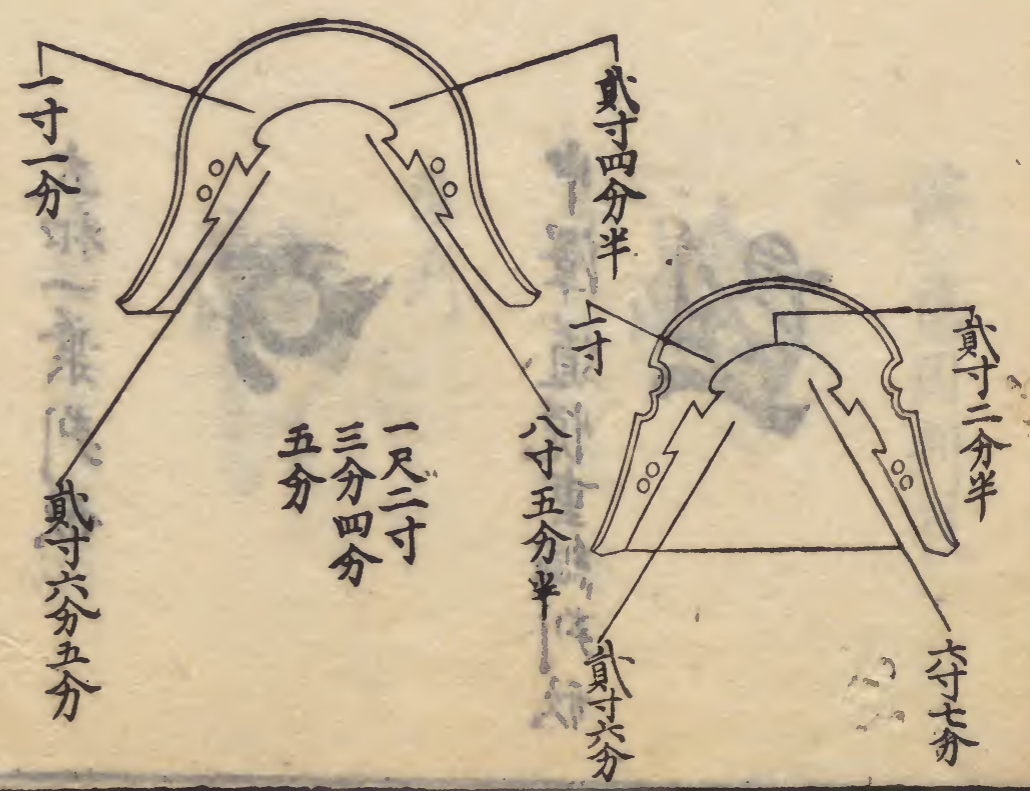 貳寸二分半
六寸七分
一寸
貳寸六分
貳寸四分半
八寸五分半
一尺二寸
三分四分
五分
一寸一分
貳寸六分五分